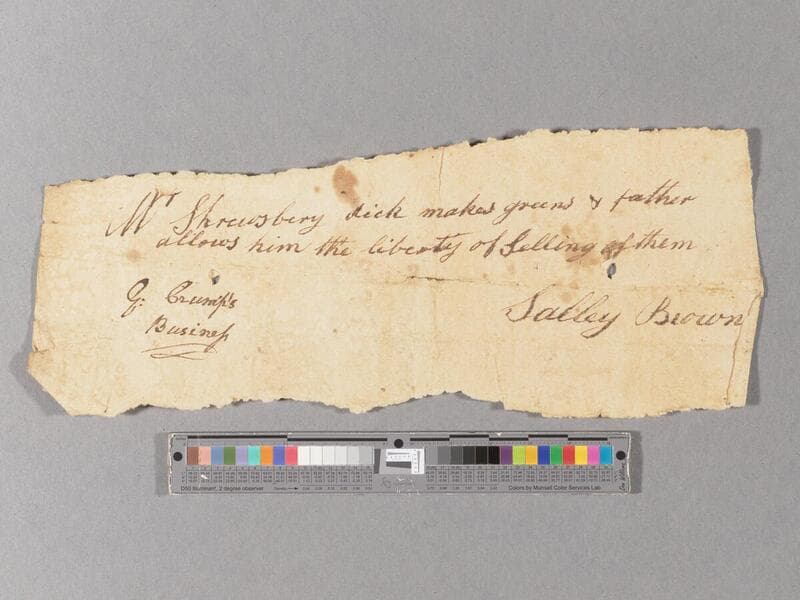 Mr Shrewsbery dick makes greens & father
allows him the liberty of Selling of them
Salley Brown
Q: Crump's
Business
D50 Illuminant, 2 degree observer
Colors by Munsell Color Services Lab